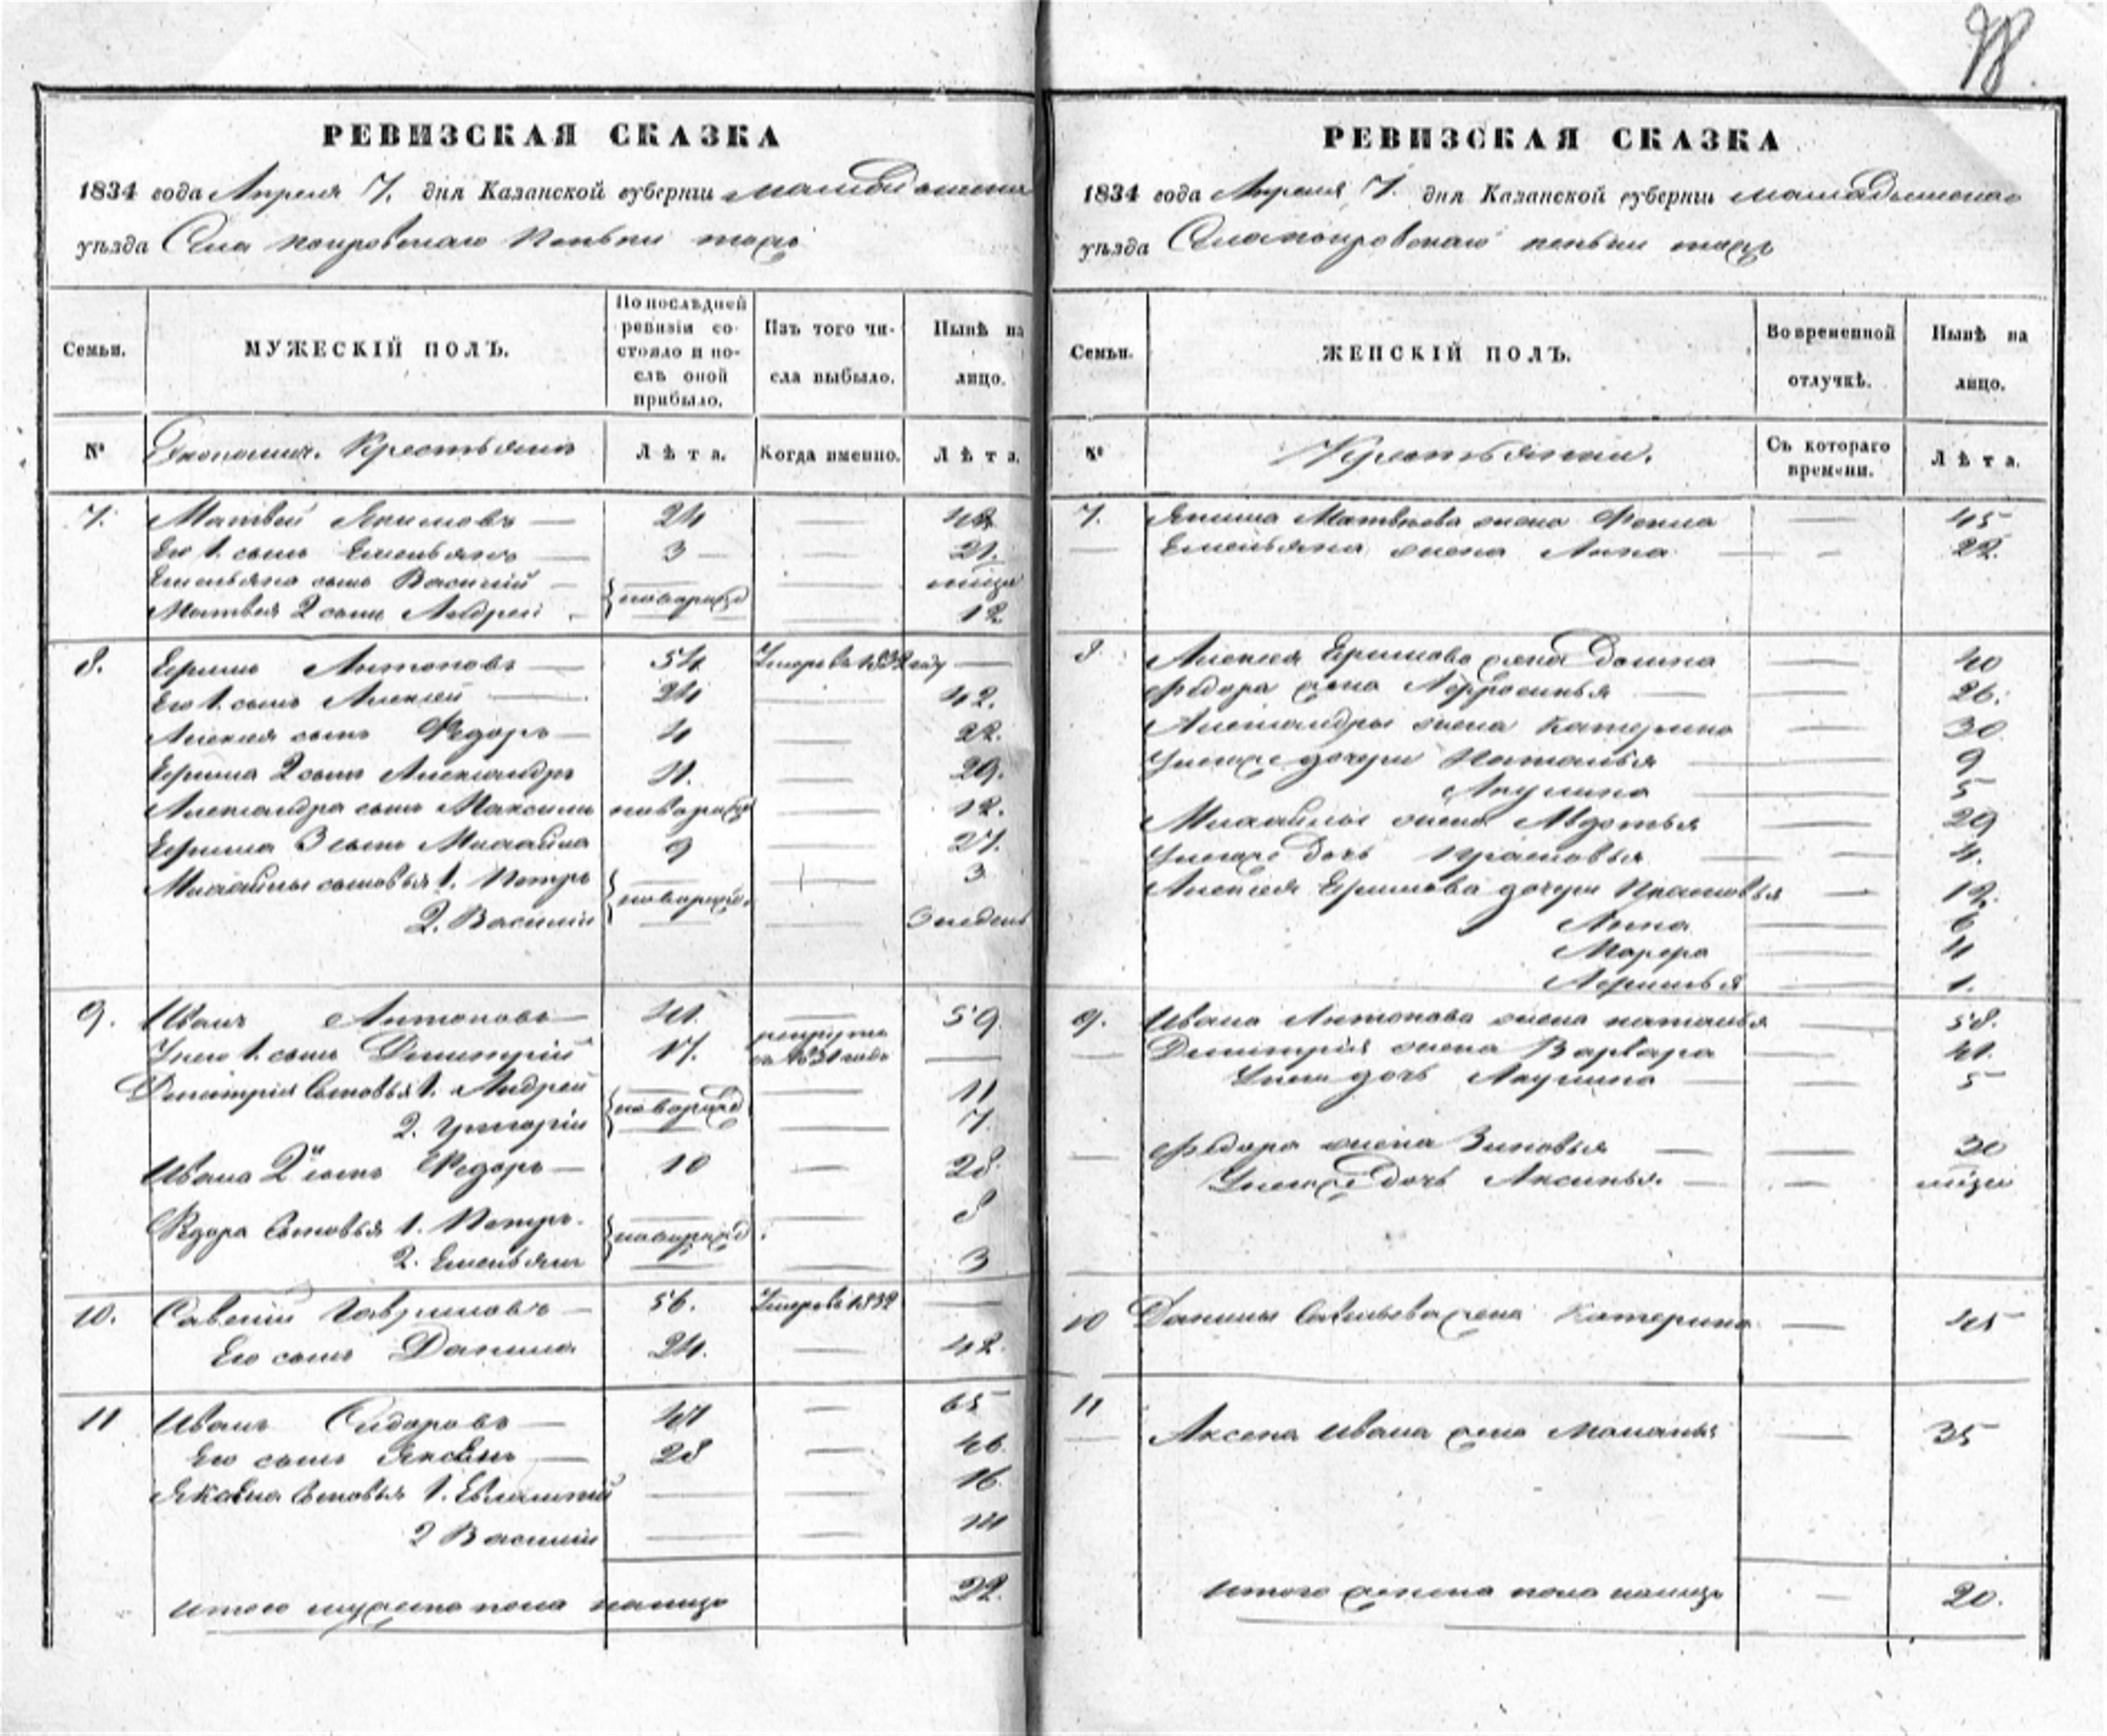 РЕВИЗСКАЯ СКАЗКА
1834 года Апреля 7. дня Казанской губерніи
уѣзда Села покровскаго тожъ
Семьи.
МУЖЕСКІЙ ПОЛЪ.
По послѣдней ревизіи состояло и послѣ оной прибыло.
Изъ того числа выбыло.
Нынѣ на лицо.
№
Економич. Крестьяне
Лѣта.
Когда именно.
Лѣта.
7. Матвей Якимовъ — 24 —
Его 1. сынъ Емельянъ — 3 — 21.
Емельяна сынъ Василий —
Матвея 2 сынъ Андрей — новорожд — 12
8. Ефимъ Антоновъ — 54 Умеръ въ 1832 году —
Его 1. сынъ Алексей — 24 — 42.
Алексея сынъ Федоръ — 4 — 22.
Ефима 2 сынъ Александръ 11. — 29.
Александра сынъ Максимъ новорожд — 12.
Ефима 3 сынъ Михайла 9 — 27.
Михайлы сыновья 1. Петръ — 3
новорожд.
2. Василий — 3 недель
9. Иванъ Антоновъ — 41 — 59
У него 1. сынъ Дмитрий 17. рекрутъ въ 1831 годе —
Дмитрия Сыновья 1. Андрей — 11
новорожд
2. Григорий — 7
Ивана 2й сынъ Федоръ — 10 — 28
Федора Сыновья 1. Петръ. — 8
новорожд
2. Емельянъ — 3
10. Савелий Гавриловъ — 56. Умеръ въ 1832 —
Его сынъ Данила 24. — 42
11 Иванъ Сидоровъ — 47 — 65
Его сынъ Аксенъ — 28 — 46
сыновья 1. Евлампий — 16
2 Василий — 14
итого мужеска пола налицо 22.
РЕВИЗСКАЯ СКАЗКА
1834 года Апреля 7. дня Казанской губерніи
уѣзда Села покровскаго тожъ
Семьи.
ЖЕНСКІЙ ПОЛЪ.
Во временной отлучкѣ.
Нынѣ на лицо.
№
Крестьянки.
Съ котораго времени.
Лѣта.
7. Якима Матвеева жена Фекла — 45
Емельяна жена Анна — 22.
8 Алексея Ефимова жена Домна — 40
Федора жена Афросинья — 26.
Александры жена Катерина — 30
У нихже дочери Наталья — 9
Акулина — 5
Михайлы жена Авдотья — 29
У нихже дочь Прасковья — 4.
Алексея Ефимова дочери Прасковья — 12
Анна — 6
— 4
— 1.
9. Ивана Антонова жена наталья — 58.
Дмитрия жена Варвара — 41.
У них дочь Акулина — 5
Федора жена Зиновья — 30
У нихже дочь Аксинья. —
10 Данилы Савельева жена Катерина — 45
11
Аксена Ивана жена Маланья — 35
итого женска пола налицо — 20.